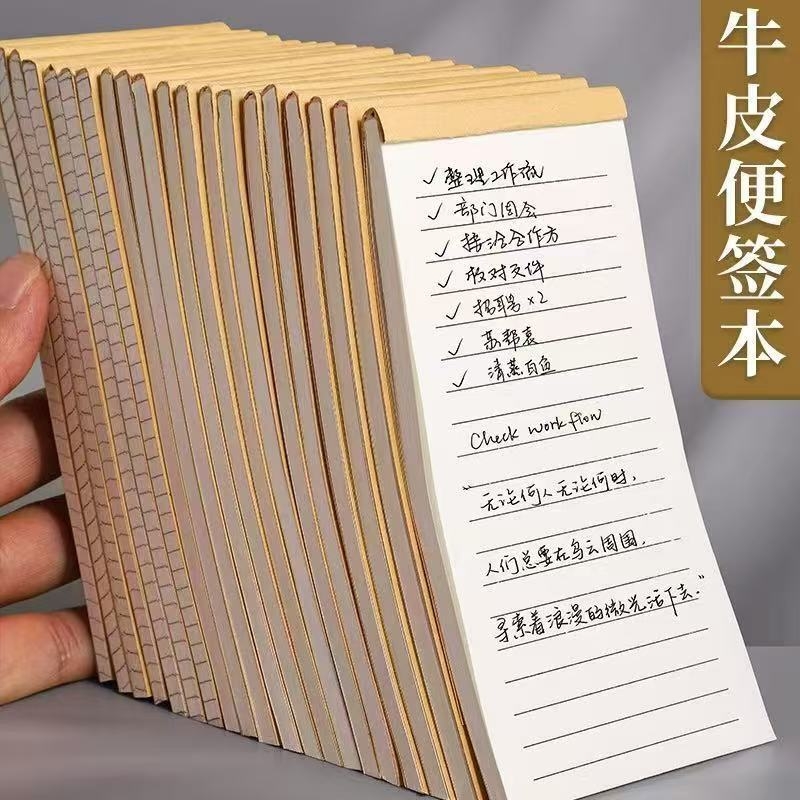 牛皮便签本
✓ 整理工作流
✓ 部门周会
✓ 接洽合作方
✓ 核对文件
✓ 招聘×2
✓ 清蒸白鱼
Check workflow
"无论何人无论何时,
人们总要在乌云周围,
寻索着浪漫的微光活下去."